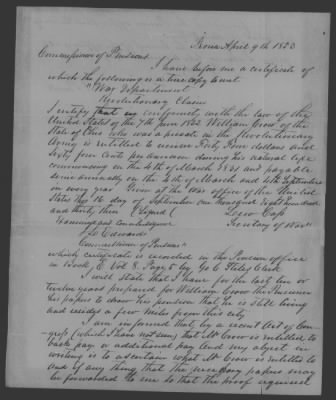 Peoria April 9th 1853
Commissioner of Pensions
I have before me a certificate
of which the following is a true copy to wit
"War Department
Revolutionary Claim
I certify that in conformity with the law of the
United States of the 7th June 1832 William Crow of the
State of Ohio who was a private in the Revolutionary
Army is entitled to receive Forty Four dollars and
Sixty four Cents per annum during his natural life
commencing on the 4th of March 1831 and payable
Semi annually on the 4th of March and 4th September
in every year Given at the War office of the United
States this 16 day of September one thousand Eight hundred
and thirty three (Signed) Lewis Cass
Examined and Countersigned Secretary of War"
J L Edwards
Commissioner of Pensions"
which certificate is recorded in the Pension office
in Book E Vol 8 Page 5 by Clerk
I will state that I have for the last ten or
twelve years prepared for William Crow the Pensioner
his papers to draw his pension that he is still living
and resides a few miles from this city
I am informed that by a recent Act of Con-
gress (which I have not seen) that Mr Crow is entitled to
back pay or additional pay and my object in
writing is to ascertain what Mr Crow is entitled to
and if any thing that the necessary papers may
be forwarded to me so that the proof required